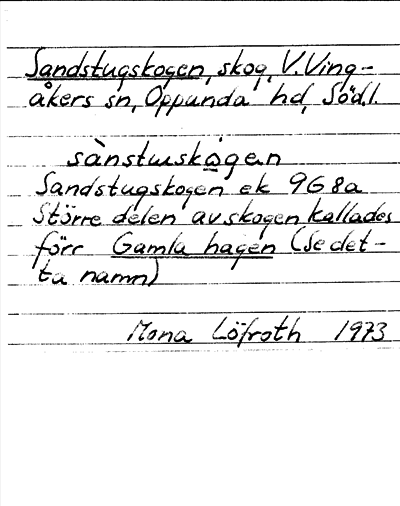 Sandstugskogen, skog, V. Ving-
åkers sn, Oppunda hd, Söd.l.
sànstuskògen
Sandstugskogen ek 9G8a
Större delen av skogen kallades
förr Gamla hagen (Se det-
ta namn)
Mona Löfroth 1973